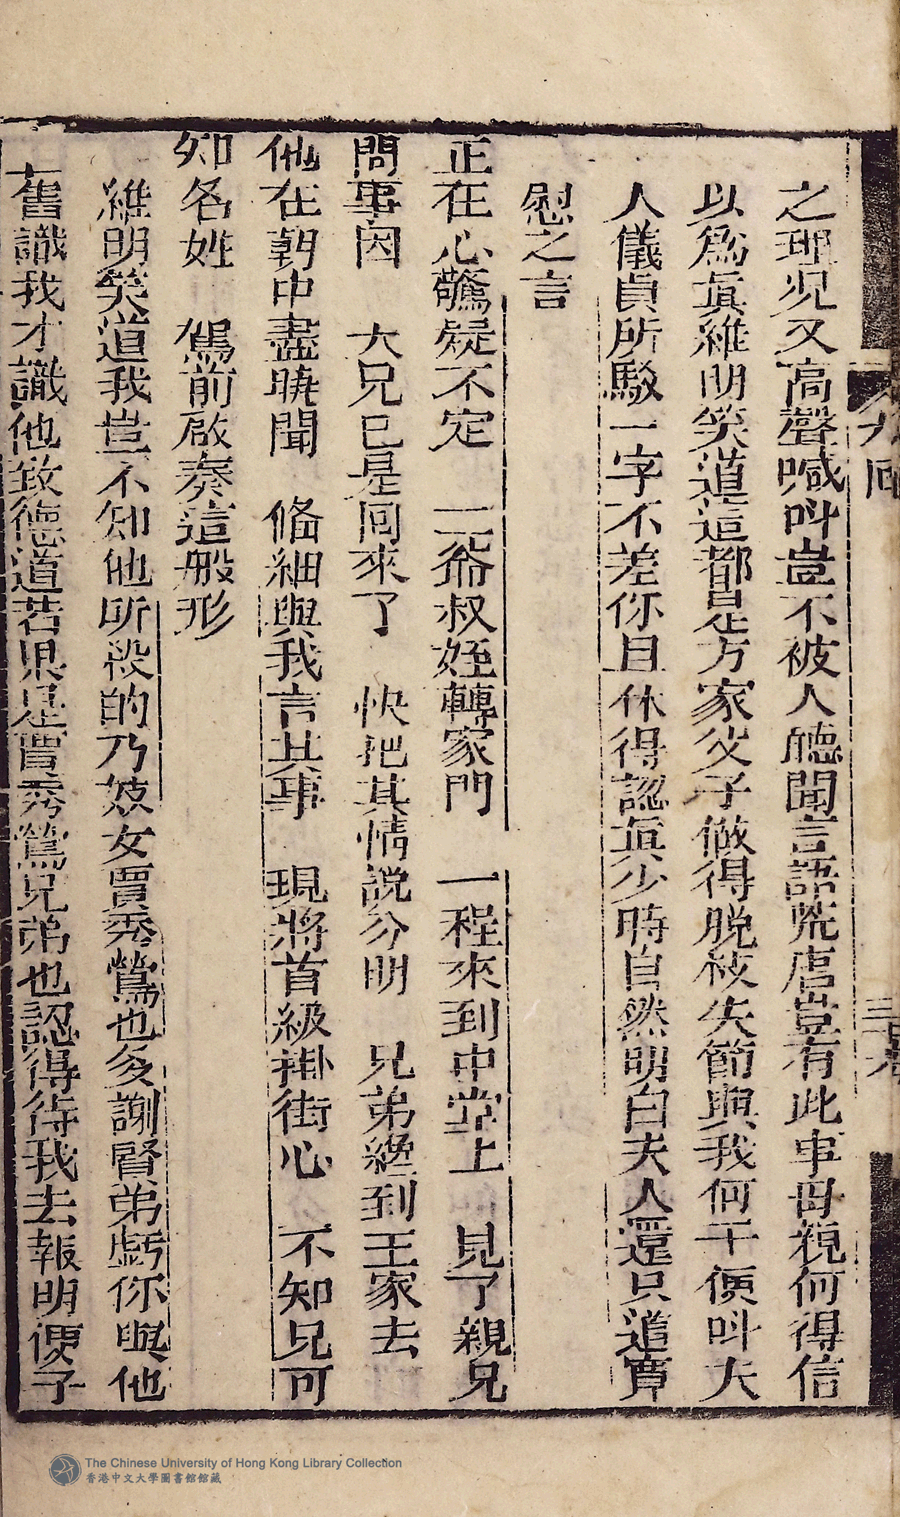 之理況又高聲喊叫豈不被人聽聞言語荒唐豈有此事母親何得信
以爲眞維明笑道這都是方家父子做得脫枝失節與我何干便叫夫
人儀貞所駁一字不差你且休得認眞少時自然明白夫人還只道寬
慰之言
正在心驚疑不定 二爺叔姪轉家門 一程來到中堂上 見了親兄
問事因 大兄已是回來了 快把其情說分明 兄弟纔到王家去
他在朝中盡曉聞 備細與我言其事 現將首級掛街心 不知兄可
知名姓 駕前啟奏這般形
維明笑道我豈不知他所殺的乃妓女賈秀鶯也多謝賢弟虧你與他
舊識我才識他致德道若果是賈秀鶯兄弟也認得待我去報明便了
回
The Chinese University of Hong Kong Library Collection
香港中文大學圖書館館藏